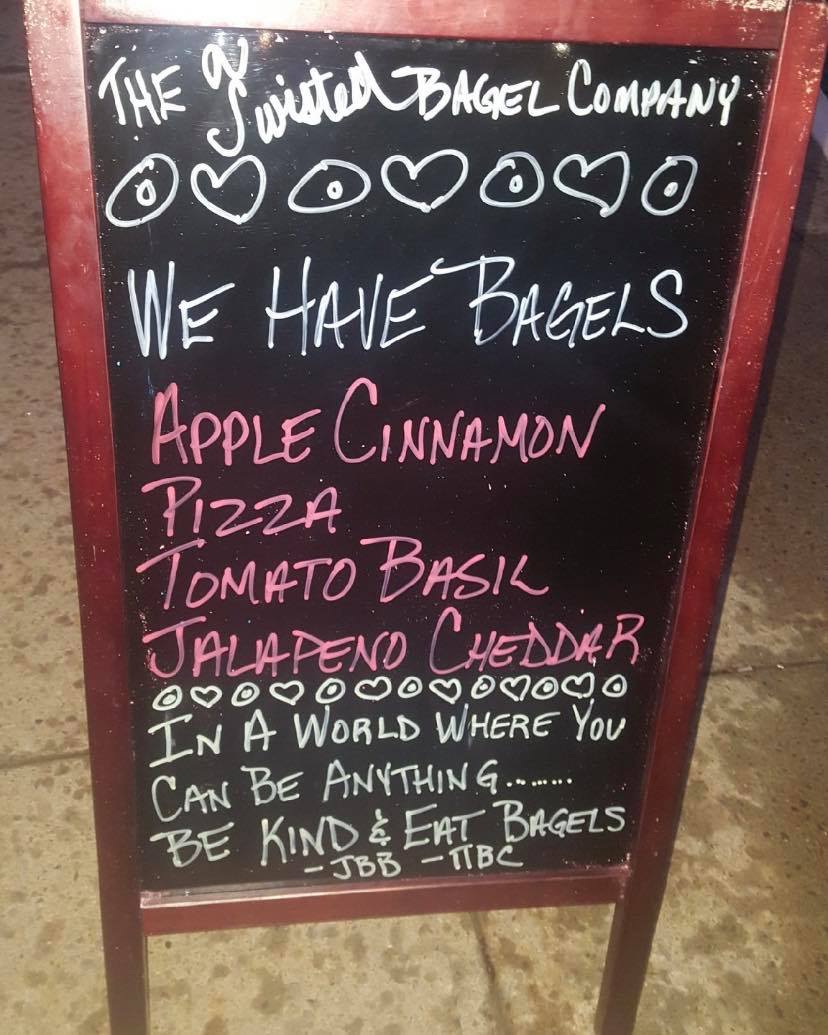 THE Twisted BAGEL COMPANY
WE HAVE BAGELS
APPLE CINNAMON
PIZZA
TOMATO BASIL
JALAPENO CHEDDAR
IN A WORLD WHERE YOU
CAN BE ANYTHING........
BE KIND & EAT BAGELS
- JBB - TTBC